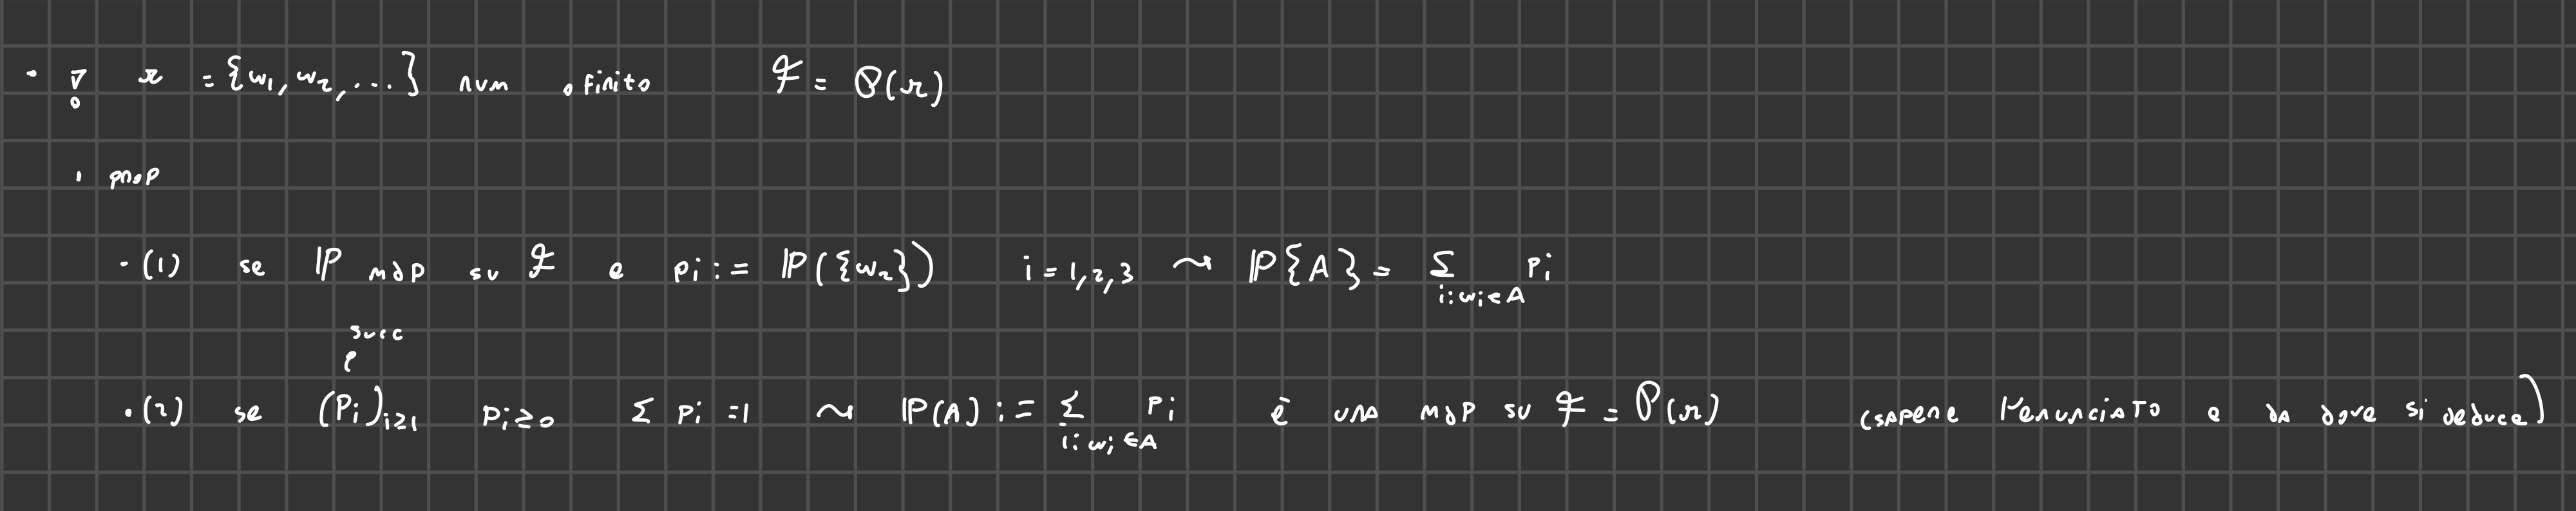 · ∇ Ω = {ω₁, ω₂, ...} num o finito ℱ = 𝒫(Ω)
· prop
· (1) se ℙ mdp su ℱ e pi := ℙ({ω₂}) i = 1,2,3 ⤳ ℙ{A} = Σ_{i: ωi ∈ A} pi
succ
· (2) se (Pi)_{i≥1} Pi ≥ 0 Σ Pi = 1 ⤳ ℙ(A) := Σ_{i: ωi ∈ A} Pi è una mdp su ℱ = 𝒫(Ω) (sapere l'enunciato e da dove si deduce)